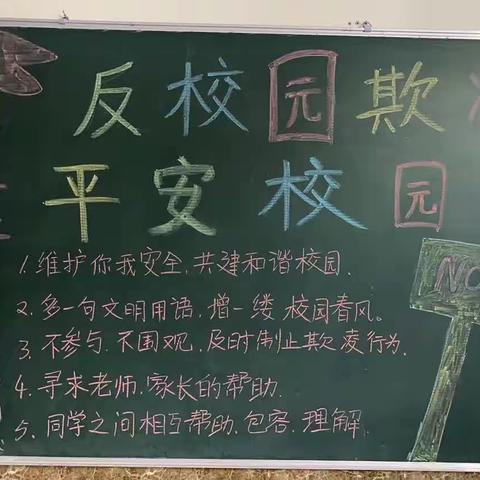 反校园欺
平安校园
1.维护你我安全,共建和谐校园.
2.多一句文明用语,增一缕校园春风。
3.不参与.不围观,及时制止欺凌行为.
4.寻求老师,家长的帮助.
5.同学之间相互帮助.包容.理解.
NO